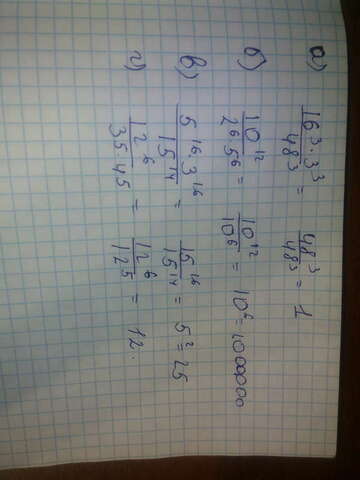 а) 16³·3³/48³ = 48³/48³ = 1
б) 10¹²/2⁶5⁶ = 10¹²/10⁶ = 10⁶=1000000
в) 5¹⁶·3¹⁶/15¹⁴ = 15¹⁶/15¹⁴ = 5²=25
г) 12⁶/3⁵4⁵ = 12⁶/12⁵ = 12.